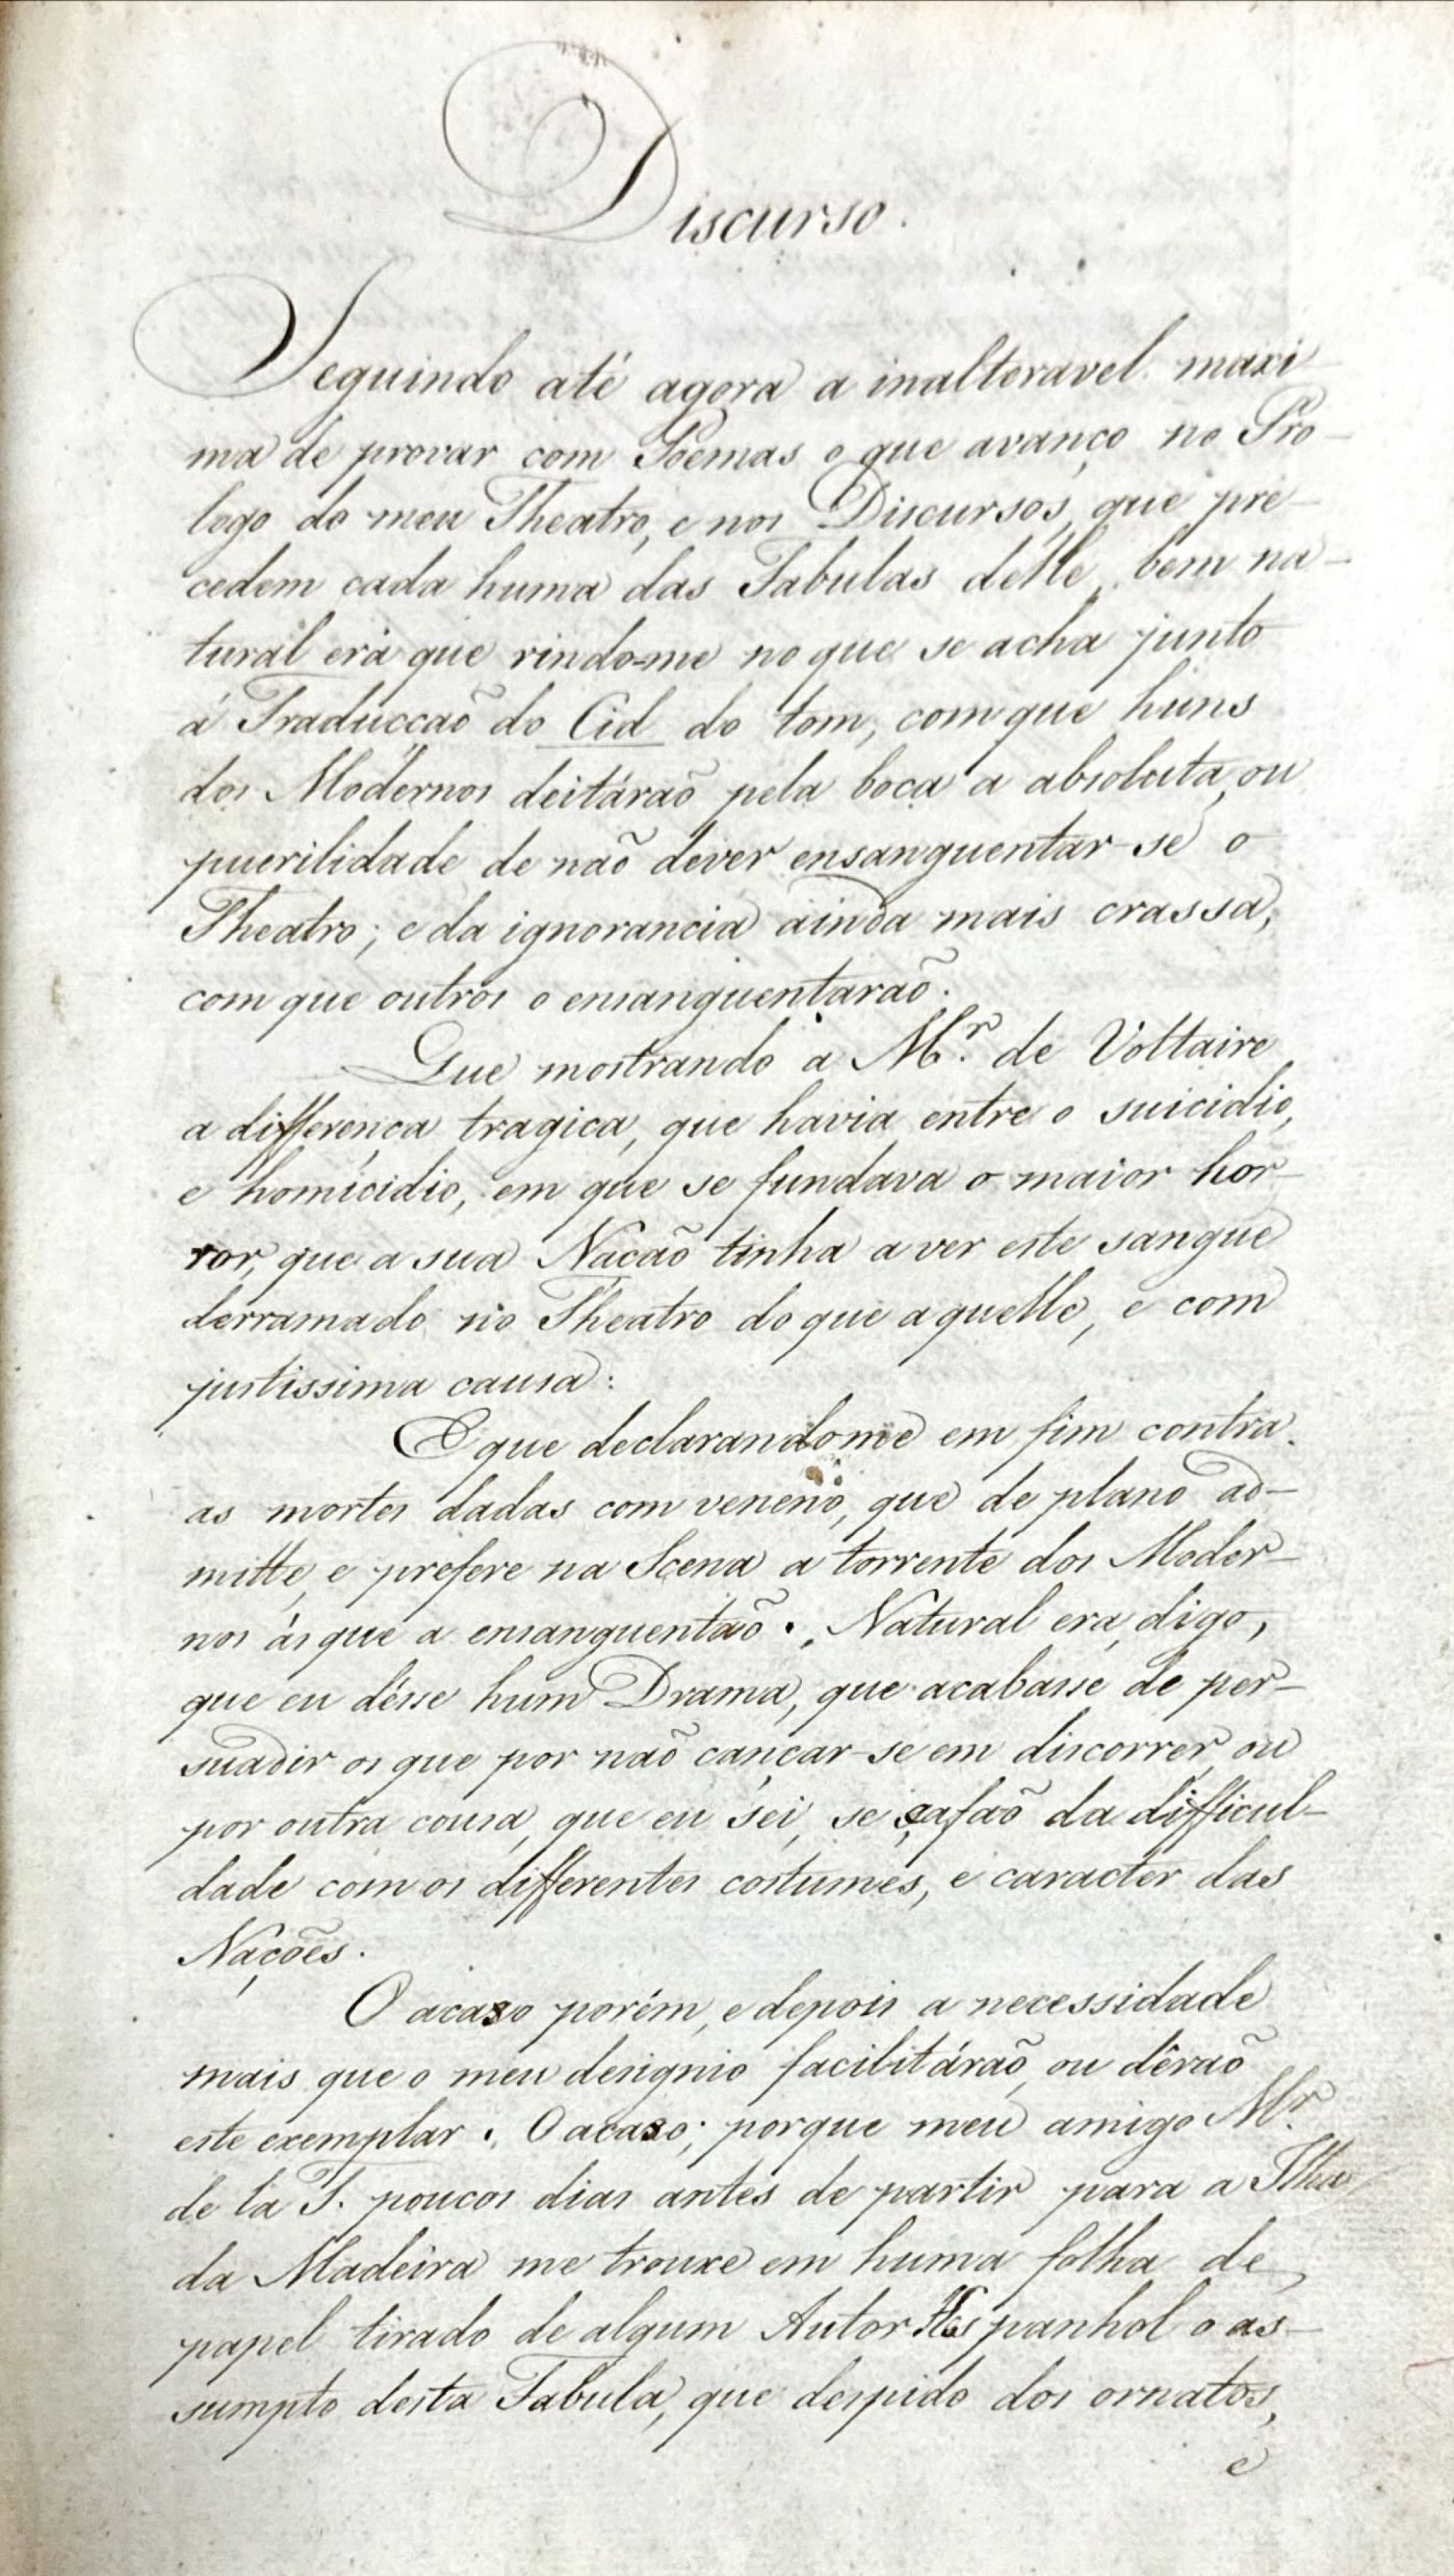 Discurso.
Seguindo até agora a inalteravel maxi-
ma de provar com Poemas o que avanço no Pro-
logo do meu Theatro, e nos Discursos, que pre-
cedem cada huma das Fabulas delle, bem na-
tural era que rindo-me no que se acha junto
á Traducçaõ do Cid do tom, com que huns
dos Modernos deitáraõ pela boca a absoluta, ou
puerilidade de naõ dever ensanguentar-se o
Theatro; e da ignorancia ainda mais crassa,
com que outros o ensanguentaraõ.
Que mostrando a Mr. de Voltaire
a differença tragica, que havia entre o suicidio,
e homicidio, em que se fundava o maior hor-
ror, que a sua Naçaõ tinha a ver este sangue
derramado no Theatro do que aquelle, e com
justissima causa:
E que declarandome em fim contra
as mortes dadas com veneno, que de plano ad-
mitte, e prefere na Scena a torrente dos Moder-
nos ás que a ensanguentaõ. Natural era, digo,
que eu désse hum Drama, que acabasse de per-
suadir os que por naõ cançar-se em discorrer, ou
por outra cousa, que eu sei, se çafaõ da difficul-
dade com os differentes costumes, e caracter das
Nações.
O acazo porém, e depois a necessidade
mais que o meu designio facilitáraõ, ou dêraõ
este exemplar. O acazo; porque meu amigo Mr.
de la T. poucos dias antes de partir para a Ilha
da Madeira me trouxe em huma folha de
papel tirado de algum Autor Hespanhol o as-
sumpto desta Fabula, que despido dos ornatos,
e